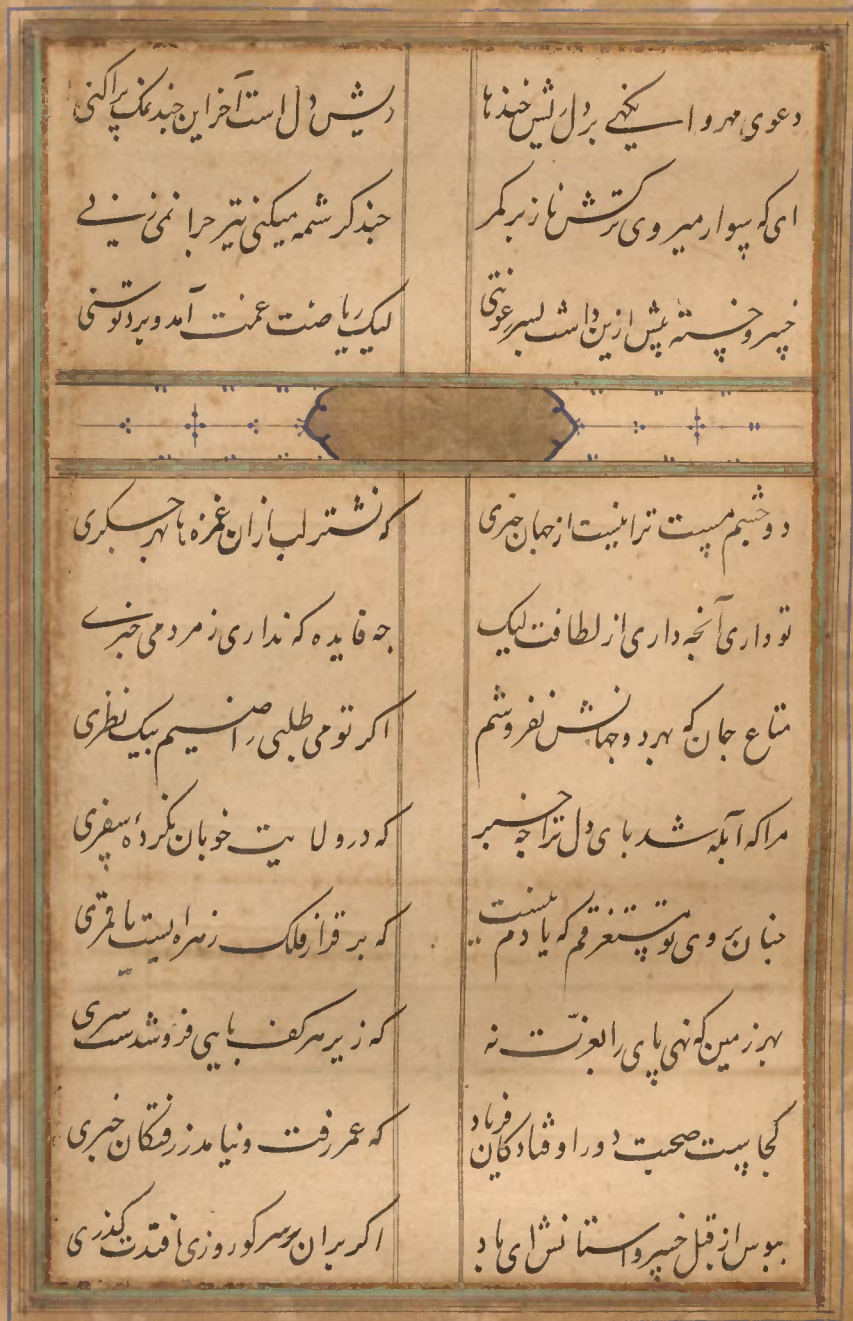 دعوی مهر و اینکهی بر دل ریش خندها ریش دل است آخر این چند نمک پراکنی
ای که سوار میروی ترکش ناز بر کمر چند کرشمه میکنی تیر چرا نمی زنی
خسرو خسته پیش ازین داشت بسر رعونتی لیک ریاضت غمت آمد و برد توسنی
دو چشم مست ترا نیست از جهان خبری که نشتر لب ازان غمزه با بهر جکری
تو داری آنچه داری از لطافت لیک چه فایده که نداری ز مردمی خبری
متاع جان که بهر دو جهانش نفروشم اکر تو می طلبی راضیم بیک نظری
مرا که آبله شد پای دل ترا چه خبر که در ولایت خوبان نکردهٔ سفری
چنان بروی تو مستغرقم که یادم نیست که بر فراز فلک زهره ایست یا قمری
بهر زمین که نهی پای را بعزت نه که زیر هر کف پایی فرو شدست سری
کجاست صحبت دور اوفتادکان فریاد که عمر رفت و نیامد ز رفتکان خبری
ببوس از قبل خسرو آستانش ای باد اکر بران سر کو روزی افتدت کذری